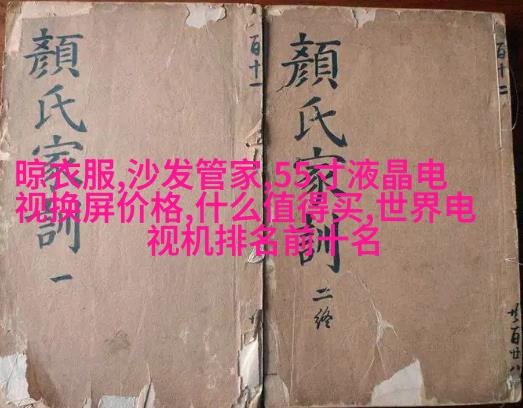 顔氏家訓 一
百十一
顔氏家訓 二終
百十二
晾衣服,沙发管家,55寸液晶电
视换屏价格,什么值得买,世界电
视机排名前十名